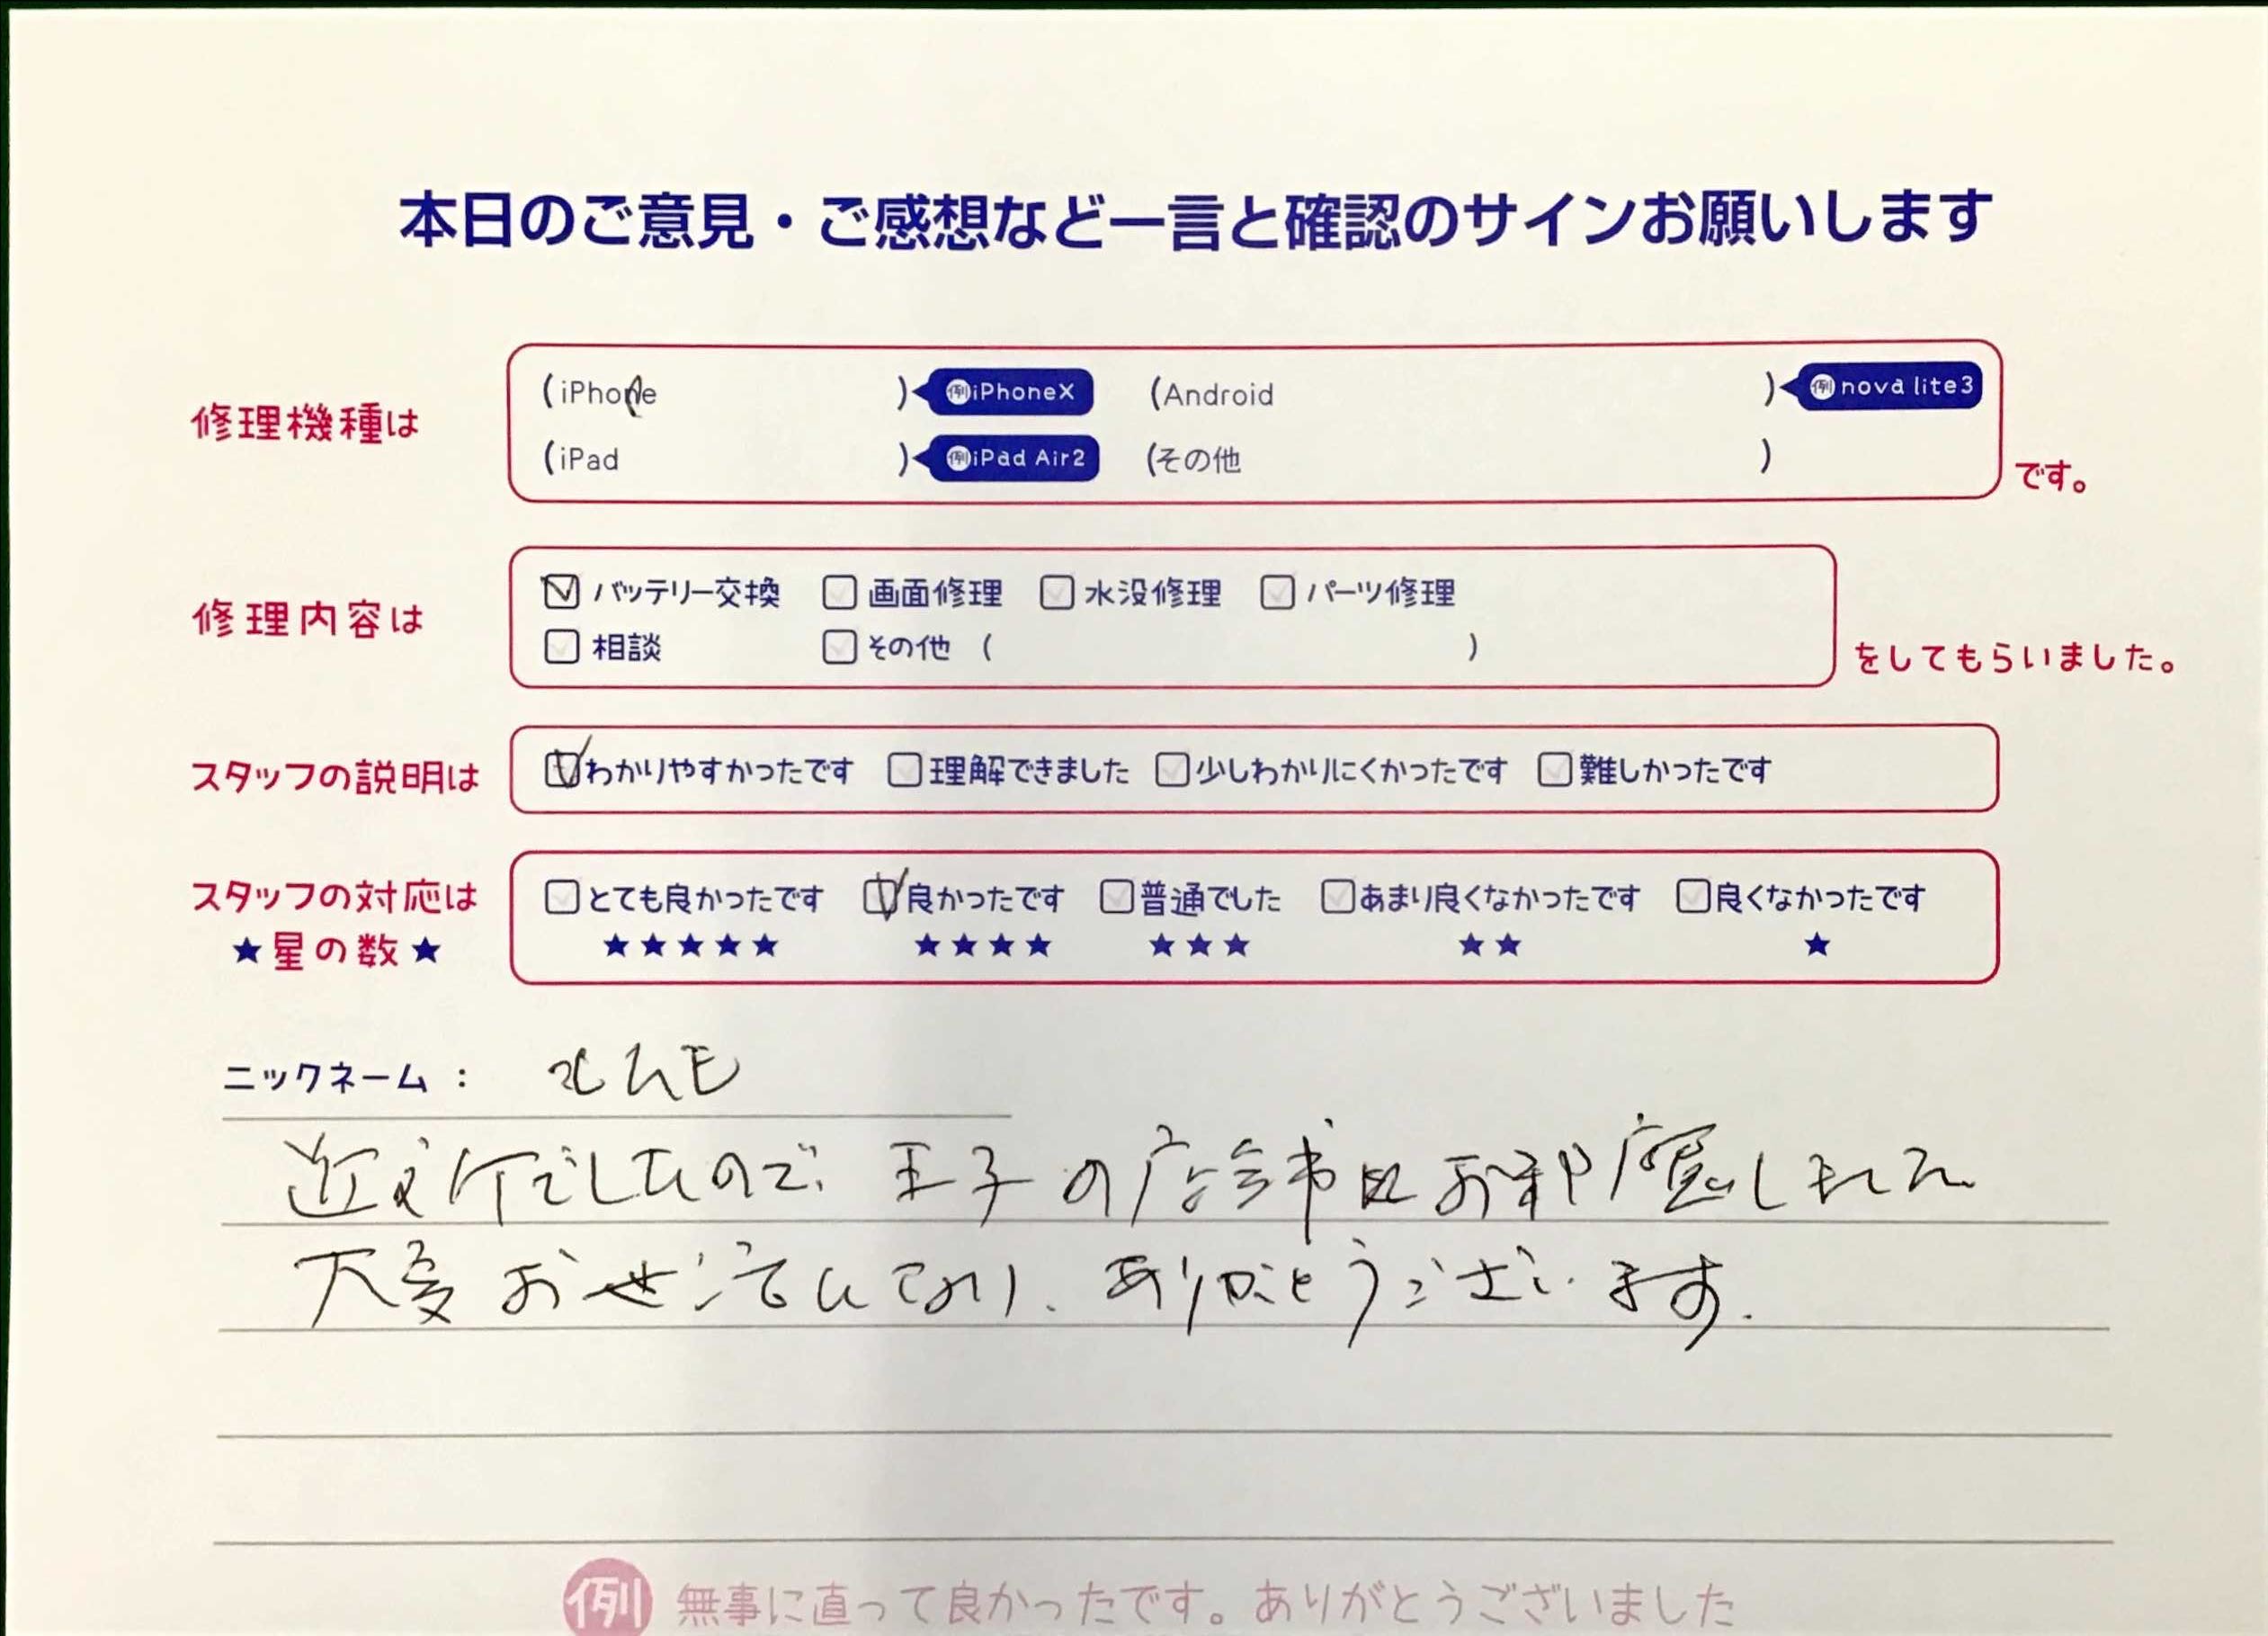 本日のご意見・ご感想など一言と確認のサインお願いします
修理機種は (iPhone ) 例iPhoneX (Android ) 例nova lite3
(iPad ) 例iPad Air2 (その他 ) です。
修理内容は バッテリー交換 画面修理 水没修理 パーツ修理
相談 その他 ( ) をしてもらいました。
スタッフの説明は わかりやすかったです 理解できました 少しわかりにくかったです 難しかったです
スタッフの対応は とても良かったです 良かったです 普通でした あまり良くなかったです 良くなかったです
★星の数★ ★★★★★ ★★★★ ★★★ ★★ ★
ニックネーム:
近所でしたので、王子の店舗にお邪魔しました
大変お世話になり、ありがとうございます.
例 無事に直って良かったです。ありがとうございました